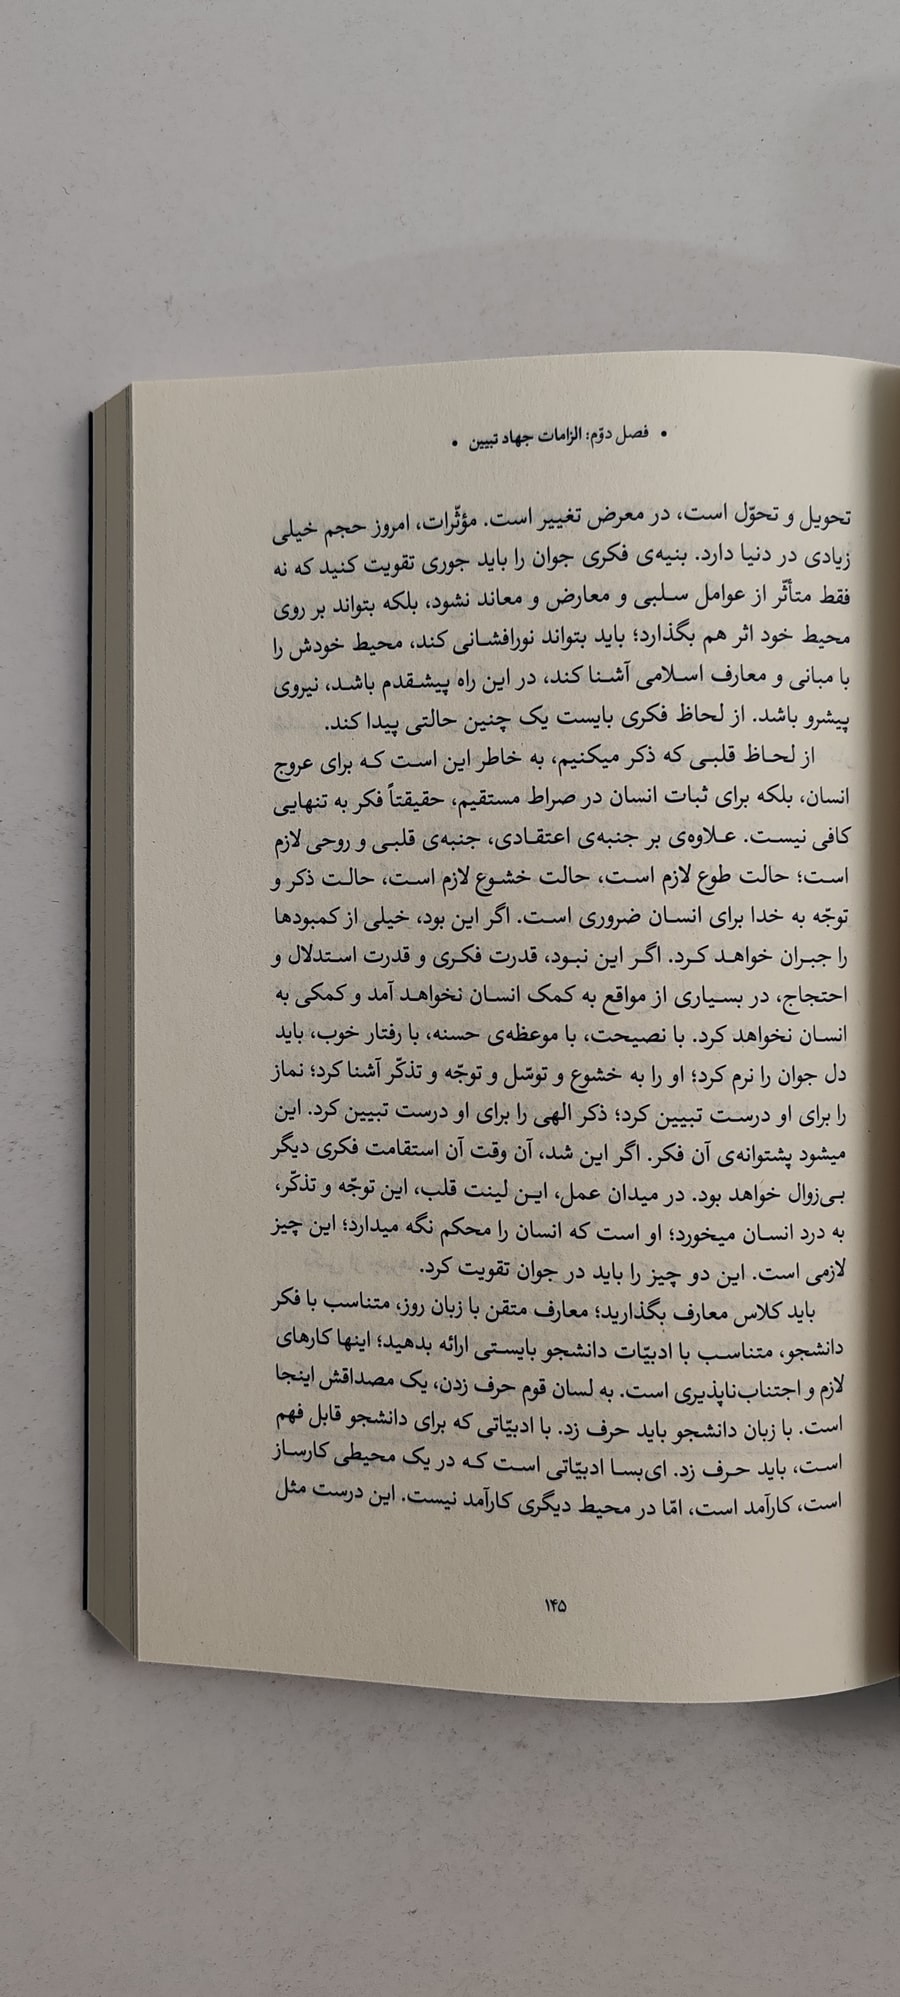 • فصل دوّم: الزامات جهاد تبیین •
تحویل و تحوّل است، در معرض تغییر است. مؤثّرات، امروز حجم خیلی
زیادی در دنیا دارد. بنیه‌ی فکری جوان را باید جوری تقویت کنید که نه
فقط متأثّر از عوامل سلبی و معارض و معاند نشود، بلکه بتواند بر روی
محیط خود اثر هم بگذارد؛ باید بتواند نورافشانی کند، محیط خودش را
با مبانی و معارف اسلامی آشنا کند، در این راه پیشقدم باشد، نیروی
پیشرو باشد. از لحاظ فکری بایست یک چنین حالتی پیدا کند.
از لحاظ قلبی که ذکر میکنیم، به خاطر این است که برای عروج
انسان، بلکه برای ثبات انسان در صراط مستقیم، حقیقتاً فکر به تنهایی
کافی نیست. علاوه‌ی بر جنبه‌ی اعتقادی، جنبه‌ی قلبی و روحی لازم
است؛ حالت طوع لازم است، حالت خشوع لازم است، حالت ذکر و
توجّه به خدا برای انسان ضروری است. اگر این بود، خیلی از کمبودها
را جبران خواهد کرد. اگر این نبود، قدرت فکری و قدرت استدلال و
احتجاج، در بسیاری از مواقع به کمک انسان نخواهد آمد و کمکی به
انسان نخواهد کرد. با نصیحت، با موعظه‌ی حسنه، با رفتار خوب، باید
دل جوان را نرم کرد؛ او را به خشوع و توسّل و توجّه و تذکّر آشنا کرد؛ نماز
را برای او درست تبیین کرد؛ ذکر الهی را برای او درست تبیین کرد. این
میشود پشتوانه‌ی آن فکر. اگر این شد، آن وقت آن استقامت فکری دیگر
بی‌زوال خواهد بود. در میدان عمل، این لینت قلب، این توجّه و تذکّر،
به درد انسان میخورد؛ او است که انسان را محکم نگه میدارد؛ این چیز
لازمی است. این دو چیز را باید در جوان تقویت کرد.
باید کلاس معارف بگذارید؛ معارف متقن با زبان روز، متناسب با فکر
دانشجو، متناسب با ادبیّات دانشجو بایستی ارائه بدهید؛ اینها کارهای
لازم و اجتناب‌ناپذیری است. به لسان قوم حرف زدن، یک مصداقش اینجا
است. با زبان دانشجو باید حرف زد. با ادبیّاتی که برای دانشجو قابل فهم
است، باید حرف زد. ای‌بسا ادبیّاتی است که در یک محیطی کارساز
است، کارآمد است، امّا در محیط دیگری کارآمد نیست. این درست مثل
۱۴۵